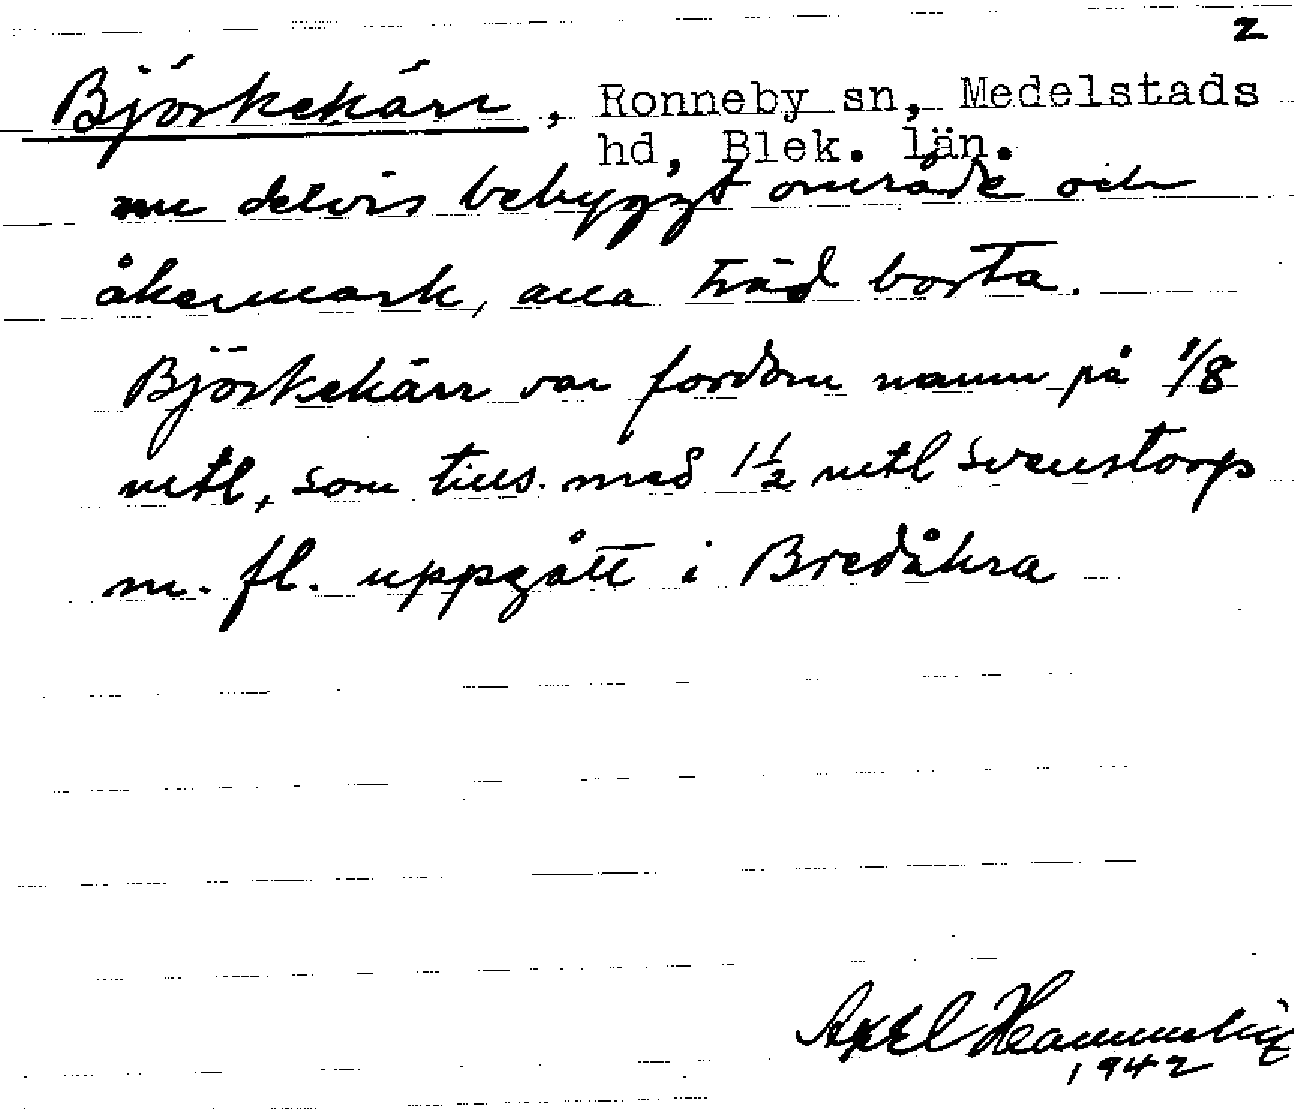 2
Björkekärr, Ronneby sn, Medelstads
hd, Blek. län.
nu delvis bebyggt område och
åkermark, alla träd borta.
Björkekärr var fordom namn på 1/8
mtl, som tills. med 1½ mtl Svenstorp
m. fl. uppgått i Bredåkra
Axel
1942